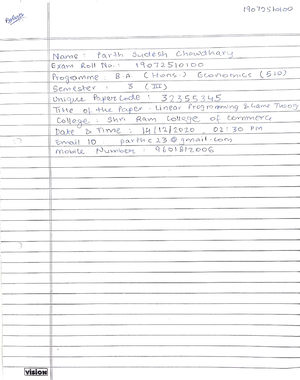 19072510100
Name : Parth Sudesh Chowdhary
Exam Roll No. : 19072510100
Programme : B.A. (Hons.) Economics (510)
Semester : 3 (III)
Unique Paper Code : 32355345
Title of the Paper : Linear Programming & Game Theory
College : Shri Ram College of Commerce
Date & Time : 14/12/2020, 02:30 PM
Email ID parthc23@gmail.com
Mobile Number :
VISION